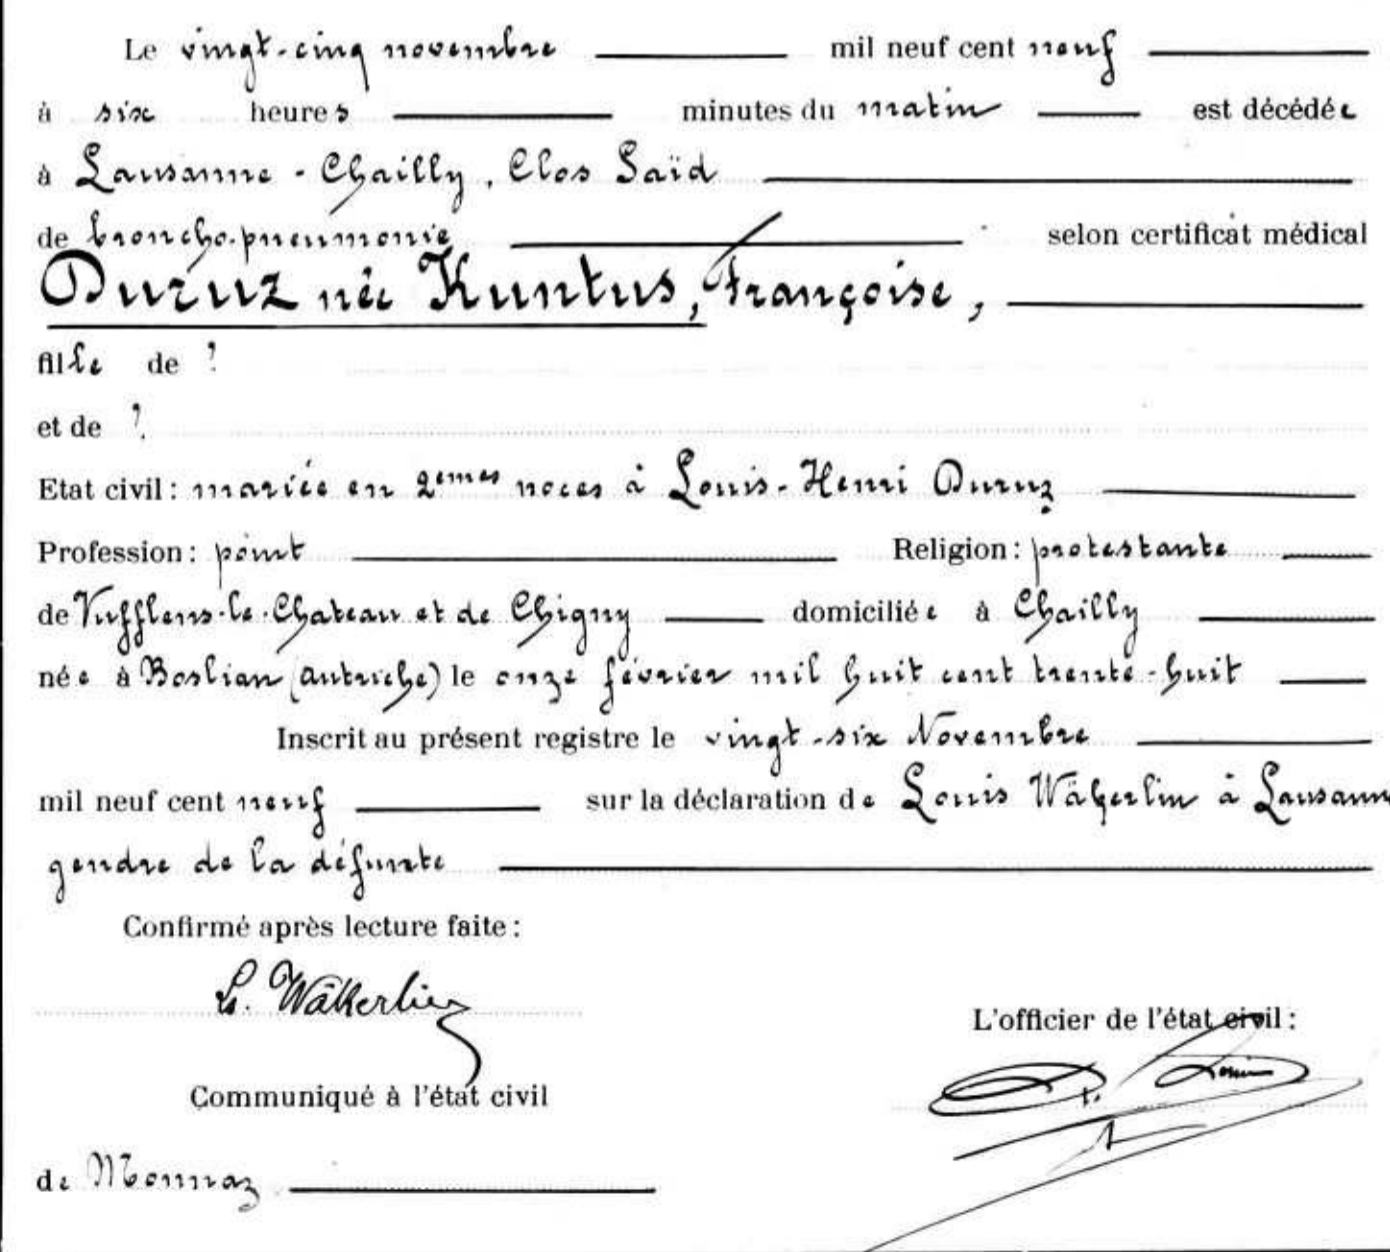 Le vingt-cinq novembre mil neuf cent neuf
à six heures minutes du matin est décédée
à Lausanne - Chailly, Clos Saïd
de broncho-pneumonie selon certificat médical
Duruz née Kuntus, Françoise,
fille de ?
et de ?
Etat civil : mariée en 2emes noces à Louis-Henri Duruz
Profession : point Religion : protestante
de Vufflens-le-Chateau et de Chigny domiciliée à Chailly
née à Boslian (Autriche) le onze février mil huit cent trente-huit
Inscrit au présent registre le vingt-six Novembre
mil neuf cent neuf sur la déclaration de Louis Wäkerlin à Lausanne
gendre de la défunte
Confirmé après lecture faite :
L. Wäkerlin
L'officier de l'état civil :
Communiqué à l'état civil
de Monnaz